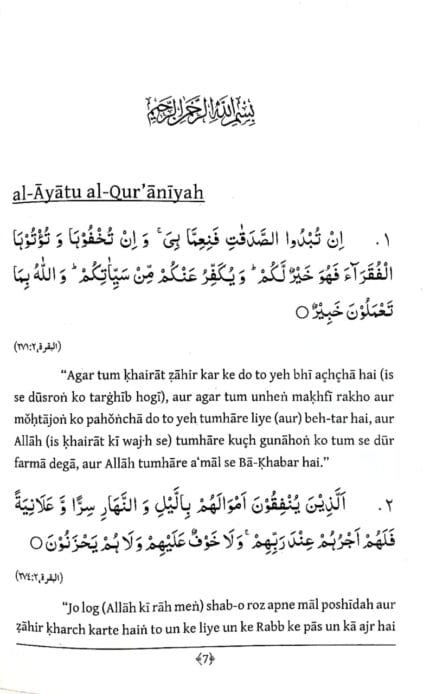 بِسْمِ اللهِ الرَّحْمٰنِ الرَّحِيْمِ
al-Āyātu al-Qur’ānīyah
١. اِنْ تُبْدُوا الصَّدَقٰتِ فَنِعِمَّا هِىَ ۚ وَ اِنْ تُخْفُوْهَا وَ تُؤْتُوْهَا
الْفُقَرَآءَ فَهُوَ خَيْرٌ لَّكُمْ ؕ وَ يُكَفِّرُ عَنْكُمْ مِّنْ سَيِّاٰتِكُمْ ؕ وَ اللّٰهُ بِمَا
تَعْمَلُوْنَ خَبِيْرٌ○
(البقرة، ٢:٢٧١)
“Agar tum ḳhairāt z̤āhir kar ke do to yeh bhī açhçhā hai (is
se dūsroṅ ko targhīb hogī), aur agar tum unheṅ maḳhfī rakho aur
mŏḥtājoṅ ko pahŏṅchā do to yeh tumhāre liye (aur) beh-tar hai, aur
Allāh (is ḳhairāt kī waj·h se) tumhāre kuçh gunāhoṅ ko tum se dūr
farmā degā, aur Allāh tumhāre a‘māl se Bā-Ḳhabar hai.”
٢. اَلَّذِيْنَ يُنْفِقُوْنَ اَمْوَالَهُمْ بِالَّيْلِ وَ النَّهَارِ سِرًّا وَّ عَلَانِيَةً
فَلَهُمْ اَجْرُهُمْ عِنْدَ رَبِّهِمْ ۚ وَلَا خَوْفٌ عَلَيْهِمْ وَلَا هُمْ يَحْزَنُوْنَ○
(البقرة، ٢:٢٧٤)
“Jo log (Allāh kī rāh meṅ) shab-o roz apne māl poshīdah aur
z̤āhir kharch karte haiṅ to un ke liye un ke Rabb ke pās un kā ajr hai
﴾7﴿